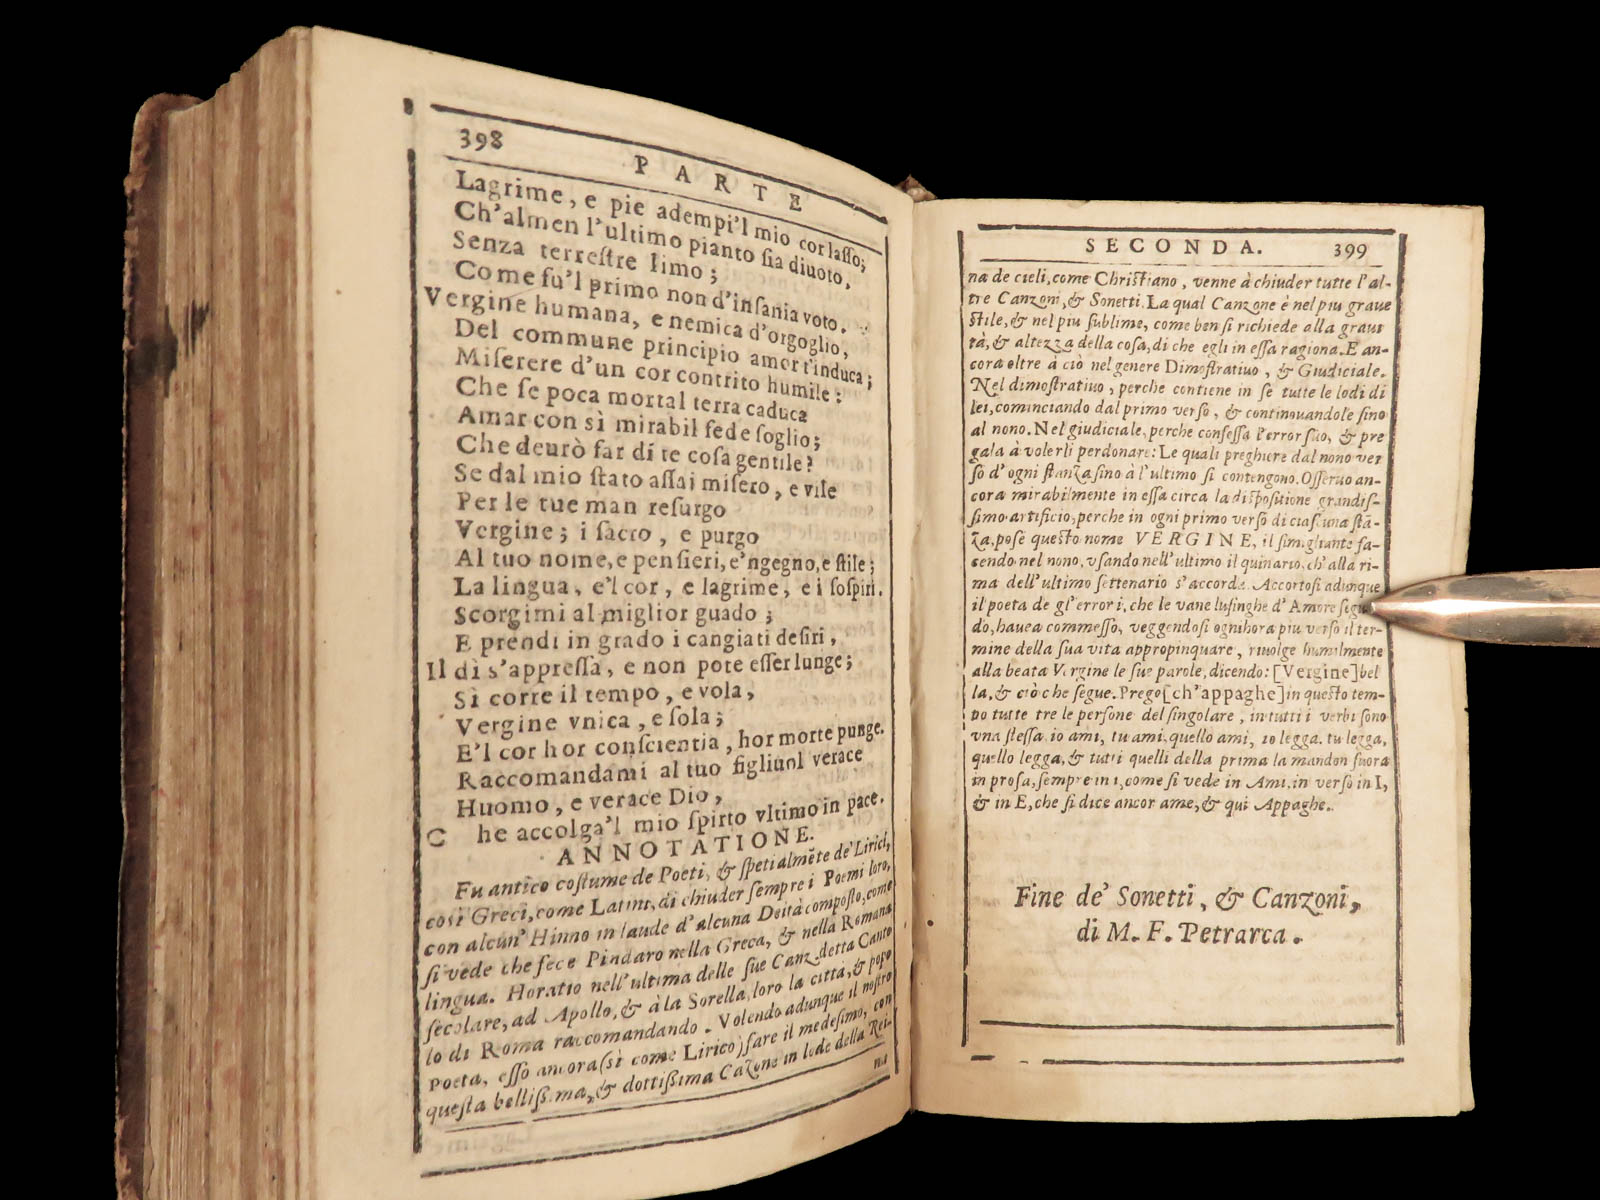 398
PARTE
Lagrime, e pie adempi'l mio cor lasso;
Ch'almen l'ultimo pianto sia diuoto,
Senza terrestre limo;
Come fu'l primo non d'insania voto.
Vergine humana, e nemica d'orgoglio,
Del commune principio amor t'induca;
Miserere d'un cor contrito humile:
Che se poca mortal terra caduca
Amar con sì mirabil fede soglio;
Che deurò far di te cosa gentile?
Se dal mio stato assai misero, e vile
Per le tue man resurgo
Vergine; i sacro, e purgo
Al tuo nome, e pensieri, e'ngegno, e stile;
La lingua, e'l cor, e lagrime, e i sospiri.
Scorgimi al miglior guado;
E prendi in grado i cangiati desiri,
Il dì s'appressa, e non pote esser lunge;
Sì corre il tempo, e vola,
Vergine vnica, e sola;
E'l cor hor conscientia, hor morte punge.
Raccomandami al tuo figliuol verace
Huomo, e verace Dio,
C he accolga'l mio spirto vltimo in pace.
ANNOTATIONE.
Fu antico costume de Poeti, & spetialmēte de' Lirici,
così Greci, come Latini, di chiuder sempre i Poemi loro,
con alcun' Hinno in laude d'alcuna Deità composto, come
si vede che fece Pindaro nella Greca, & nella Romana
lingua. Horatio nell'ultima delle sue Canz. detta Canto
secolare, ad Apollo, & à la Sorella, loro la città, & popo
lo di Roma raccomandando. Volendo adunque il nostro
Poeta, esso ancora (sì come Lirico) fare il medesimo, con
questa bellissima, & dottissima Cāzone in lode della Rei-
na
SECONDA. 399
na de cieli, come Christiano, venne à chiuder tutte l'al-
tre Canzoni, & Sonetti. La qual Canzone è nel piu graue
stile, & nel piu sublime, come ben si richiede alla graui
tà, & altezza della cosa, di che egli in essa ragiona. E an-
cora oltre à ciò nel genere Dimostratiuo, & Giudiciale.
Nel dimostratiuo, perche contiene in se tutte le lodi di
lei, cominciando dal primo verso, & continouandole fino
al nono. Nel giudiciale, perche confessa l'error suo, & pre
gala à volerli perdonare: Le quali preghiere dal nono ver
so d'ogni stanza sino à l'ultimo si contengono. Osseruo an-
cora mirabilmente in essa circa la dispositione grandis-
simo artificio, perche in ogni primo verso di ciascuna stā-
za, pose questo nome VERGINE, il simigliante fa-
cendo nel nono, vsando nell'ultimo il quinario, ch'alla ri-
ma dell'ultimo settenario s'accorda. Accortosi adunque
il poeta de gl'errori, che le vane lusinghe d'Amore segu
do, hauea commesso, veggendosi ognihora piu verso il ter-
mine della sua vita appropinquare, riuolge humilmente
alla beata Vergine le sue parole, dicendo: [Vergine] bel
la, & ciò che segue. Prego [ch'appaghe] in questo tem-
po tutte tre le persone del singolare, in tutti i verbi sono
vna stessa. io ami, tu ami, quello ami, io legga. tu legga,
quello legga, & tutti quelli della prima la mandon fuora
in prosa, sempre in i, come si vede in Ami, in verso in I,
& in E, che si dice ancor ame, & qui Appaghe.
Fine de' Sonetti, & Canzoni,
di M. F. Petrarca.